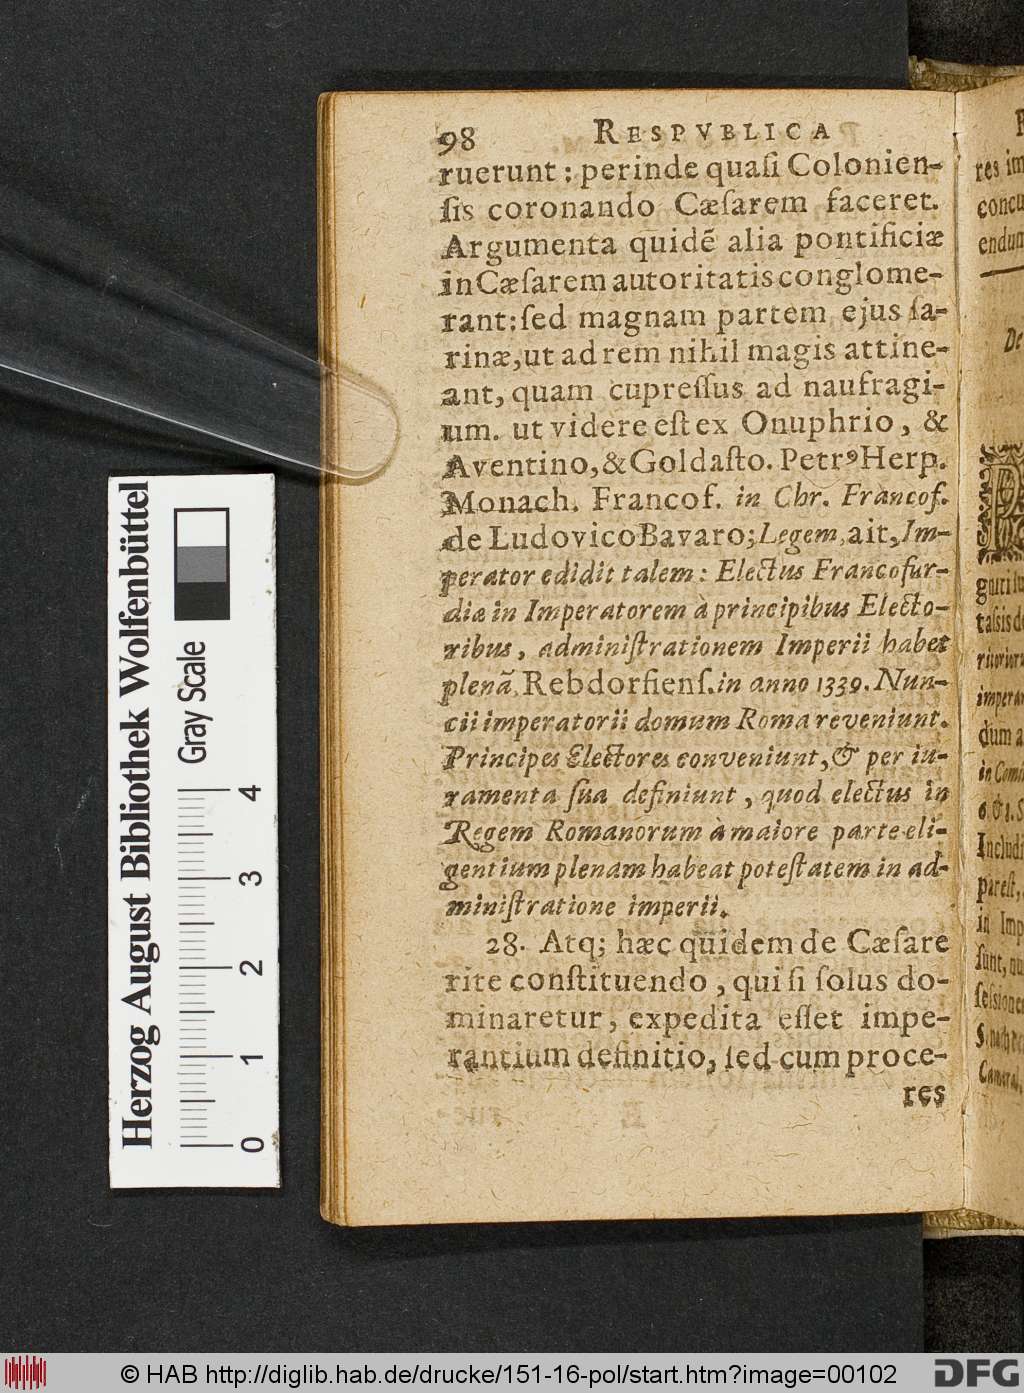 98 RESPVBLICA
ruerunt : perinde quaſi Colonien-
ſis coronando Cæſarem faceret.
Argumenta quidē alia pontificiæ
in Cæſarem autoritatis conglome-
rant: ſed magnam partem ejus fa-
rinæ, ut ad rem nihil magis attine-
ant, quam cupreſſus ad naufragi-
um. ut videre eſt ex Onuphrio, &
Aventino, & Goldaſto. Petrꝰ Herp.
Monach. Francof. in Chr. Francof.
de Ludovico Bavaro; Legem, ait, Im-
perator edidit talem : Electus Francofur-
diæ in Imperatorem à principibus Electo-
ribus, adminiſtrationem Imperii habet
plenā, Rebdorfienſ. in anno 1339. Nun-
cii imperatorii domum Roma reveniunt.
Principes Electores conveniunt, & per iu-
ramenta ſua definiunt, quod electus in
Regem Romanorum à maiore parte eli-
gentium plenam habeat poteſtatem in ad-
miniſtratione imperii.
28. Atq; hæc quidem de Cæſare
rite conſtituendo, qui ſi ſolus do-
minaretur, expedita eſſet impe-
rantium definitio, ſed cum proce-
res
res im
concu
endum
De
in Imp
Herzog August Bibliothek Wolfenbüttel
Gray Scale
0 1 2 3 4
© HAB http://diglib.hab.de/drucke/151-16-pol/start.htm?image=00102
DFG